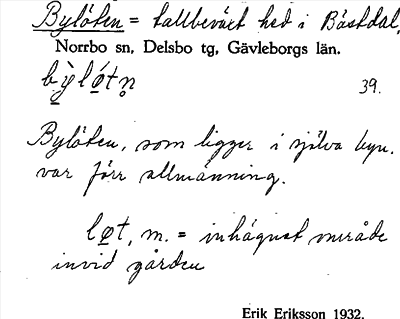 Bylöten = tallbevärt hed i Båstdal,
Norrbo sn, Delsbo tg, Gävleborgs län.
bỳ̖lǿtn̥ 39.
Bylöten, som ligger i själva byn.
var förr allmänning.
løt, m. = inhägnat område
invid gården
Erik Eriksson 1932.